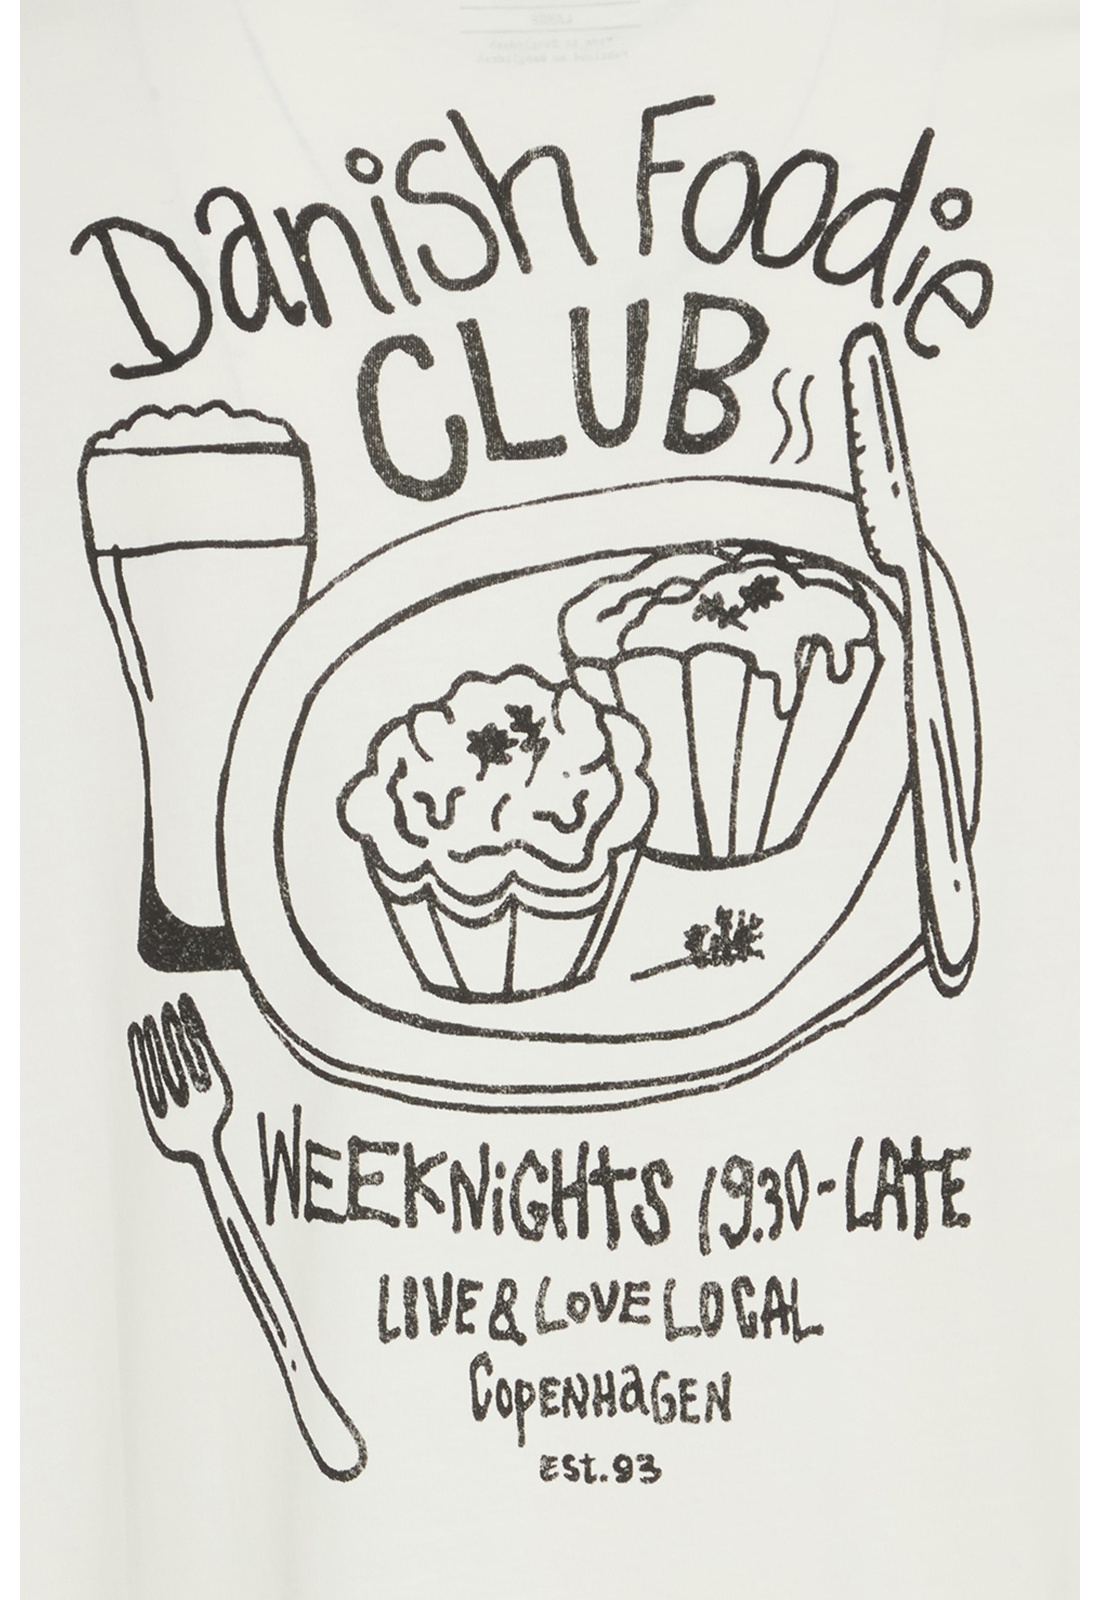 Danish Foodie
CLUB
WEEKNiGHTS 19.30-LATE
LIVE & LOVE LOCAL
COPENHaGEN
ESt.93